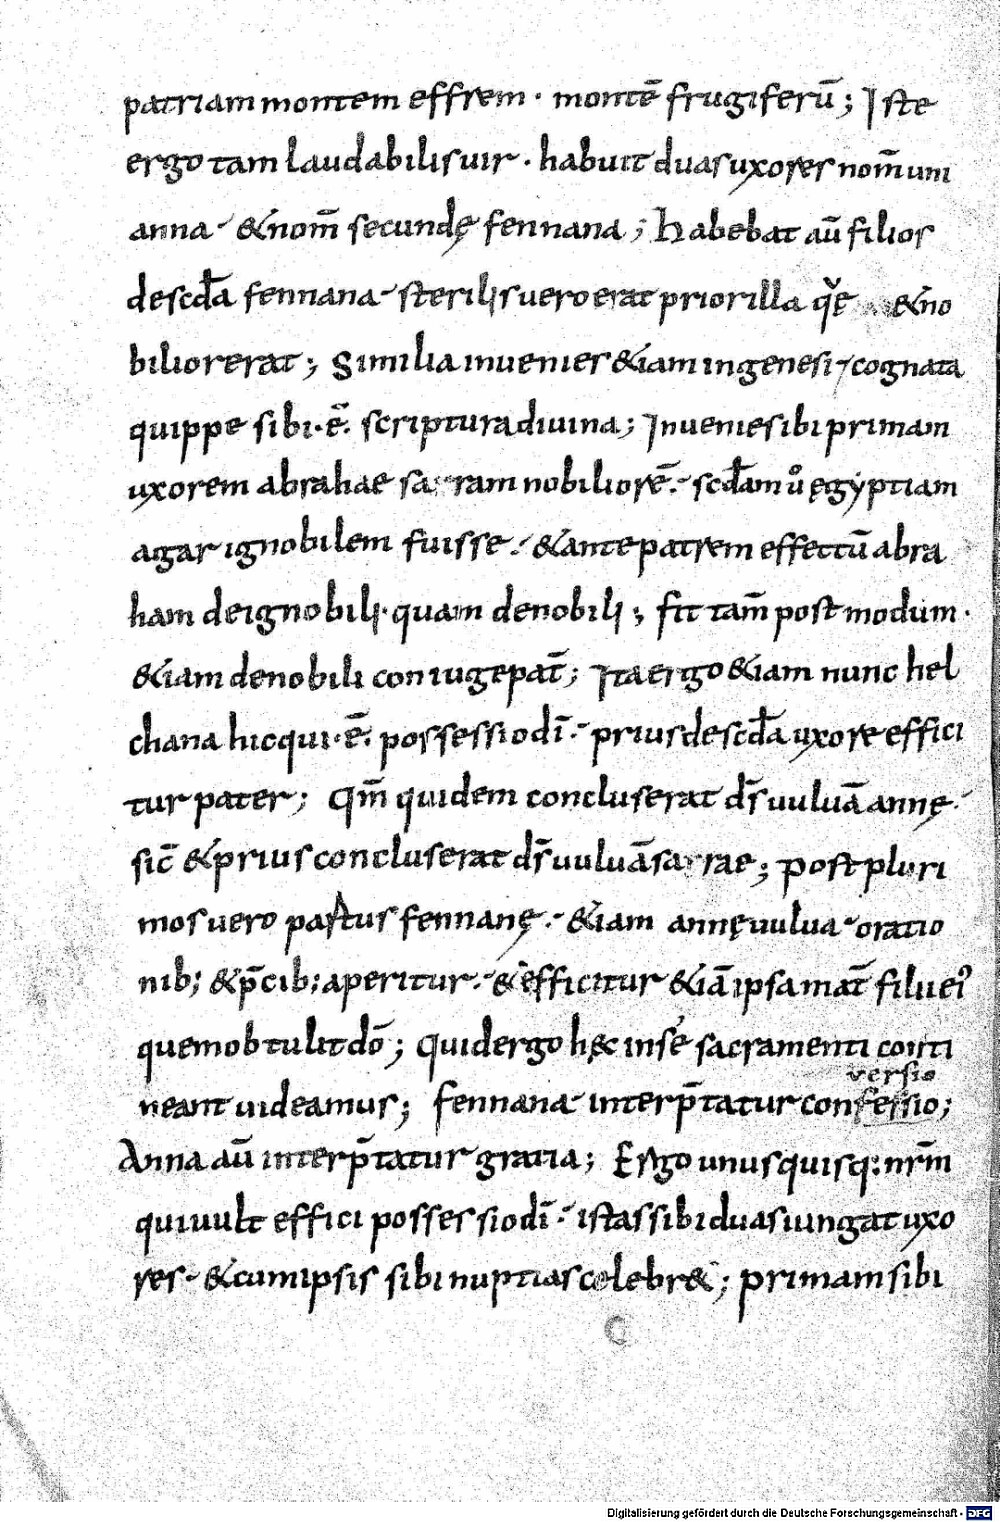 patriam montem effrem · montē frugiferū; Iste
ergo tam laudabilis uir · habuit duas uxores nom̄ uni
anna · & nom̄ secundę fennana; Habebat aū filios
de scd̄a fennana · sterilis uero erat prior illa quę & no
bilior erat; Similia inuenies &iam in genesi · cognata
quippe sibi · ē · scriptura diuina; Inuenies ibi primam
uxorem abrahae sarram nobiliorē · scd̄am uº ęgyptiam
agar ignobilem fuisse · & ante patrem effectū abra
ham de ignobili · quam de nobili; fit tam̄ post modum ·
&iam de nobili coniuge pat̄; Ita ergo &iam nunc hel
chana hic qui · ē · possessio dī · prius de scd̄a uxore effici
tur pater; Qm̄ quidem concluserat ds̄ uuluā annę ·
sic̄ & prius concluserat ds̄ uuluā sarrae; Post pluri
mos uero partus fennanę · &iam annę uulua · oratio
nib; & p̄cib; aperitur · & efficitur &iā ipsa mat̄ filii ei᾽
quem obtulit dō; Quid ergo hęc in se sacramenti conti
versio
neant uideamus; fennana interp̄tatur confessio;
Anna aū interp̄tatur gratia; Ergo unusquisq; nr̄m
qui uult effici possessio dī · istas sibi duas iungat uxo
res · & cum ipsis sibi nuptias celebr&; primam sibi
Digitalisierung gefördert durch die Deutsche Forschungsgemeinschaft - DFG